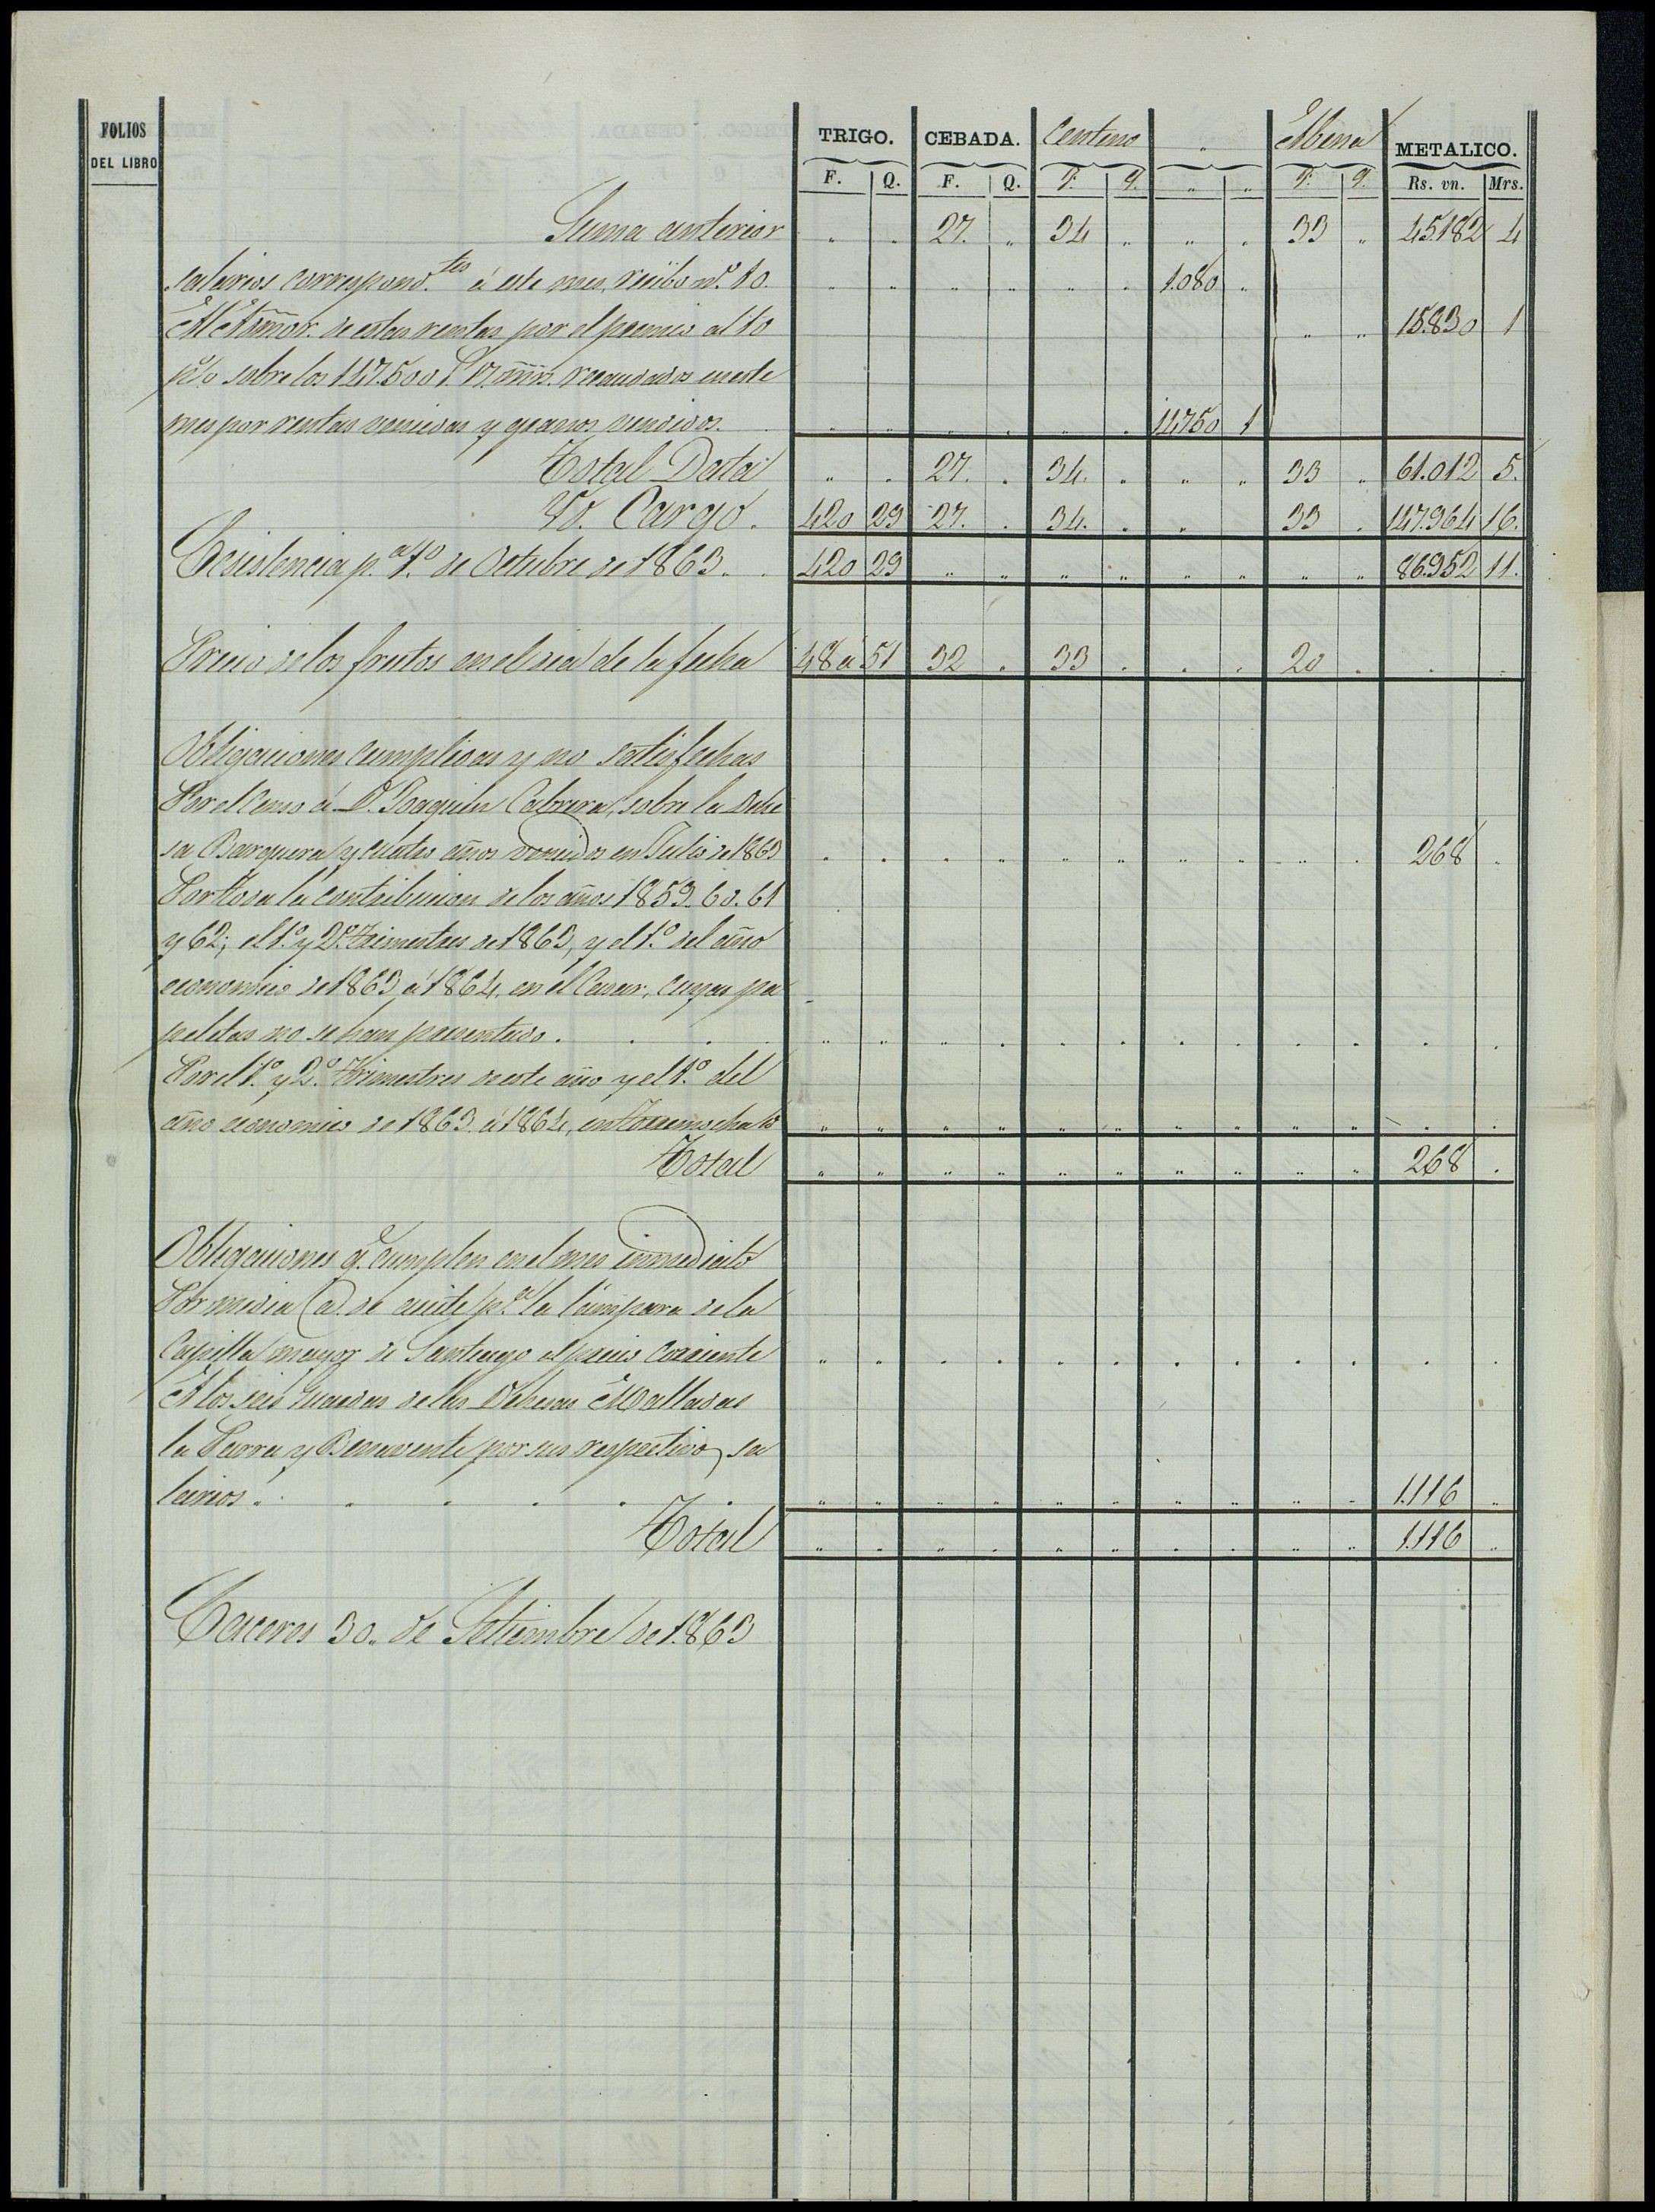 FOLIOS
DEL LIBRO
TRIGO. CEBADA. Centeno " Abena METALICO.
F. Q. F. Q. F. Q. " " F. Q. Rs. vn. Mrs.
Suma anterior " " 27. " 34 " " " 33 " 45.182 4
salarios correspond.tes á este mes, recibo nº. 10. " " " " " " 1.080 "
Al Admor. de estas rentas por el premio al 10 " " 15.830 1
p% sobre los 147.500 r. 17 mrs. recaudados en este
mes por rentas vencidas y granos vendidos. " " " " " " 14.750 1
Total Data " " 27. " 34. " " " 33 " 61.012 5.
Yd. Cargo. 420 29 27. " 34. " " 33 " 147.964 16.
Ecsistencia p.a 1º. de Octubre de 1863. 420 29 " " " " " " " " 86.952 11.
Precio de los frutos en el dia de la fecha 48 a 51 32 . 33 . . . 20 . . .
Obligaciones cumplidas y no satisfechas
Por el Censo á D. Joaquin Cabrera, sobre la Dehe
sa Barquera y cuatro años vencidos en Julio de 1863 . . . . " " " " " . 268 .
Por toda la contribucion de los años 1859. 60. 61
y 62; el 1º. y 2º. trimestres de 1863, y el 1º. del año
economico de 1863 á 1864, en el Casar, cuyas pa
peletas no se han presentado. " " " . . . . . . . . .
Por el 1º. y 2º. trimestres de este año y el 1º. del
año economico de 1863 á 1864, en Torremocha " " " " " " " " " " . .
Total " " " " " " " " " " 268 .
Obligaciones q.e cumplen en el mes inmediato
Por media @. de aceite p.a la lámpara de la
Capilla mayor de Santiago al precio corriente " . . . . . . . . . . .
A los seis Guardas de las Dehesas Malladas
la Parra y Benavente por sus respectivos sa
larios. " " " " " " " " " " 1.116 "
Total " " " " " " " " " " 1.116 "
Caceres 30. de Setiembre de 1863